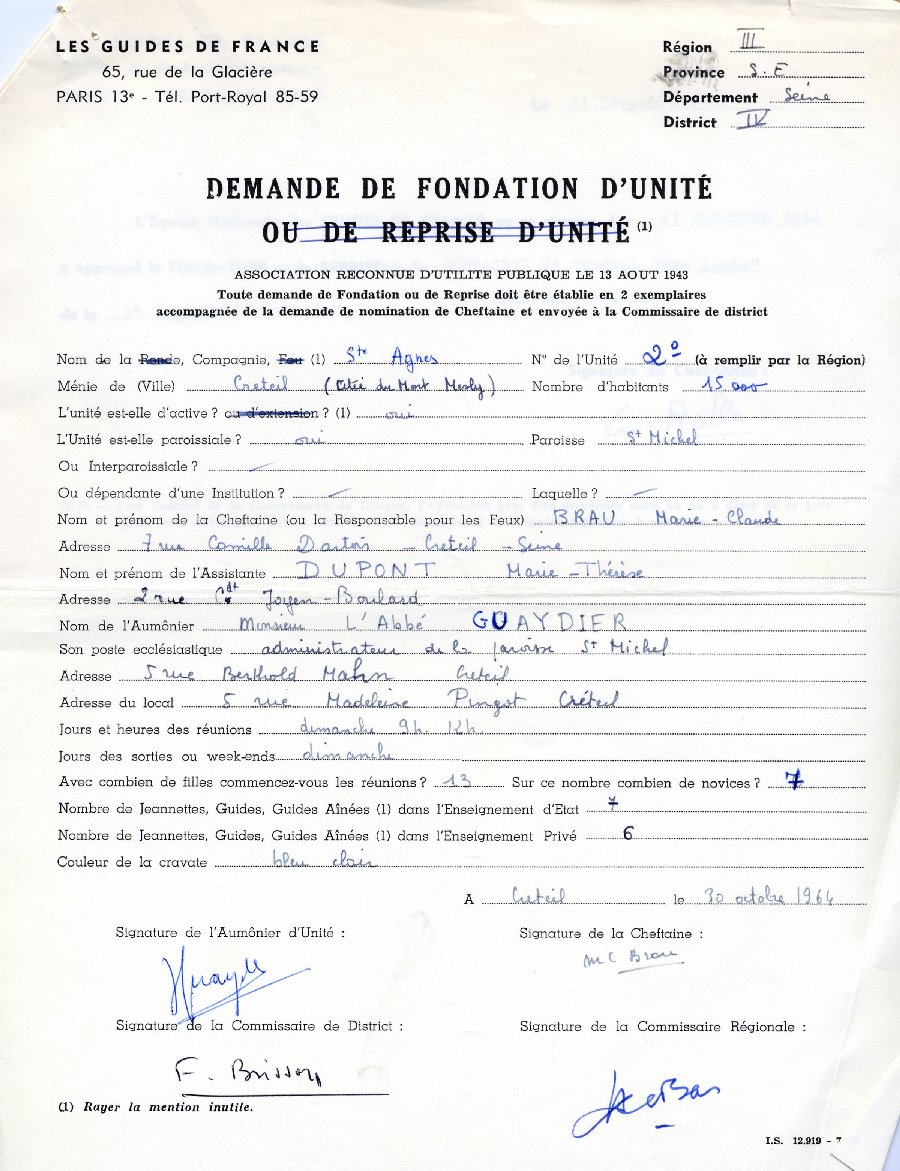 LES GUIDES DE FRANCE
65, rue de la Glacière
PARIS 13e - Tél. Port-Royal 85-59
Région III
Province S.E
Département Seine
District IV
DEMANDE DE FONDATION D'UNITÉ
OU DE REPRISE D'UNITÉ (1)
ASSOCIATION RECONNUE D'UTILITE PUBLIQUE LE 13 AOUT 1943
Toute demande de Fondation ou de Reprise doit être établie en 2 exemplaires
accompagnée de la demande de nomination de Cheftaine et envoyée à la Commissaire de district
Nom de la Ronde, Compagnie, Feu (1) Ste Agnes N° de l'Unité 2° (à remplir par la Région)
Ménie de (Ville) Creteil (Cité du Mont Mesly) Nombre d'habitants 15 000
L'unité est-elle d'active ? ou d'extension ? (1) oui
L'Unité est-elle paroissiale ? oui Paroisse St Michel
Ou Interparoissiale ?
Ou dépendante d'une Institution ? Laquelle ?
Nom et prénom de la Cheftaine (ou la Responsable pour les Feux) BRAU Marie-Claude
Adresse 7 rue Camille Dartois - Creteil - Seine
Nom et prénom de l'Assistante DUPONT Marie-Thérèse
Adresse 2 rue Cdt Joyen-Boulard
Nom de l'Aumônier Monsieur L'Abbé GUAYDIER
Son poste ecclésiastique administrateur de la paroisse St Michel
Adresse 5 rue Berthold Mahn Creteil
Adresse du local 5 rue Madeleine Pingot Créteil
Jours et heures des réunions dimanche 9h. 12h.
Jours des sorties ou week-ends dimanche
Avec combien de filles commencez-vous les réunions ? 13 Sur ce nombre combien de novices ? 7
Nombre de Jeannettes, Guides, Guides Aînées (1) dans l'Enseignement d'Etat 7
Nombre de Jeannettes, Guides, Guides Aînées (1) dans l'Enseignement Privé 6
Couleur de la cravate bleu clair
A Creteil le 30 octobre 1964
Signature de l'Aumônier d'Unité :
Signature de la Cheftaine :
MC Brau
Signature de la Commissaire de District :
Signature de la Commissaire Régionale :
F. Brisson
(1) Rayer la mention inutile.
I.S. 12.919 - 7